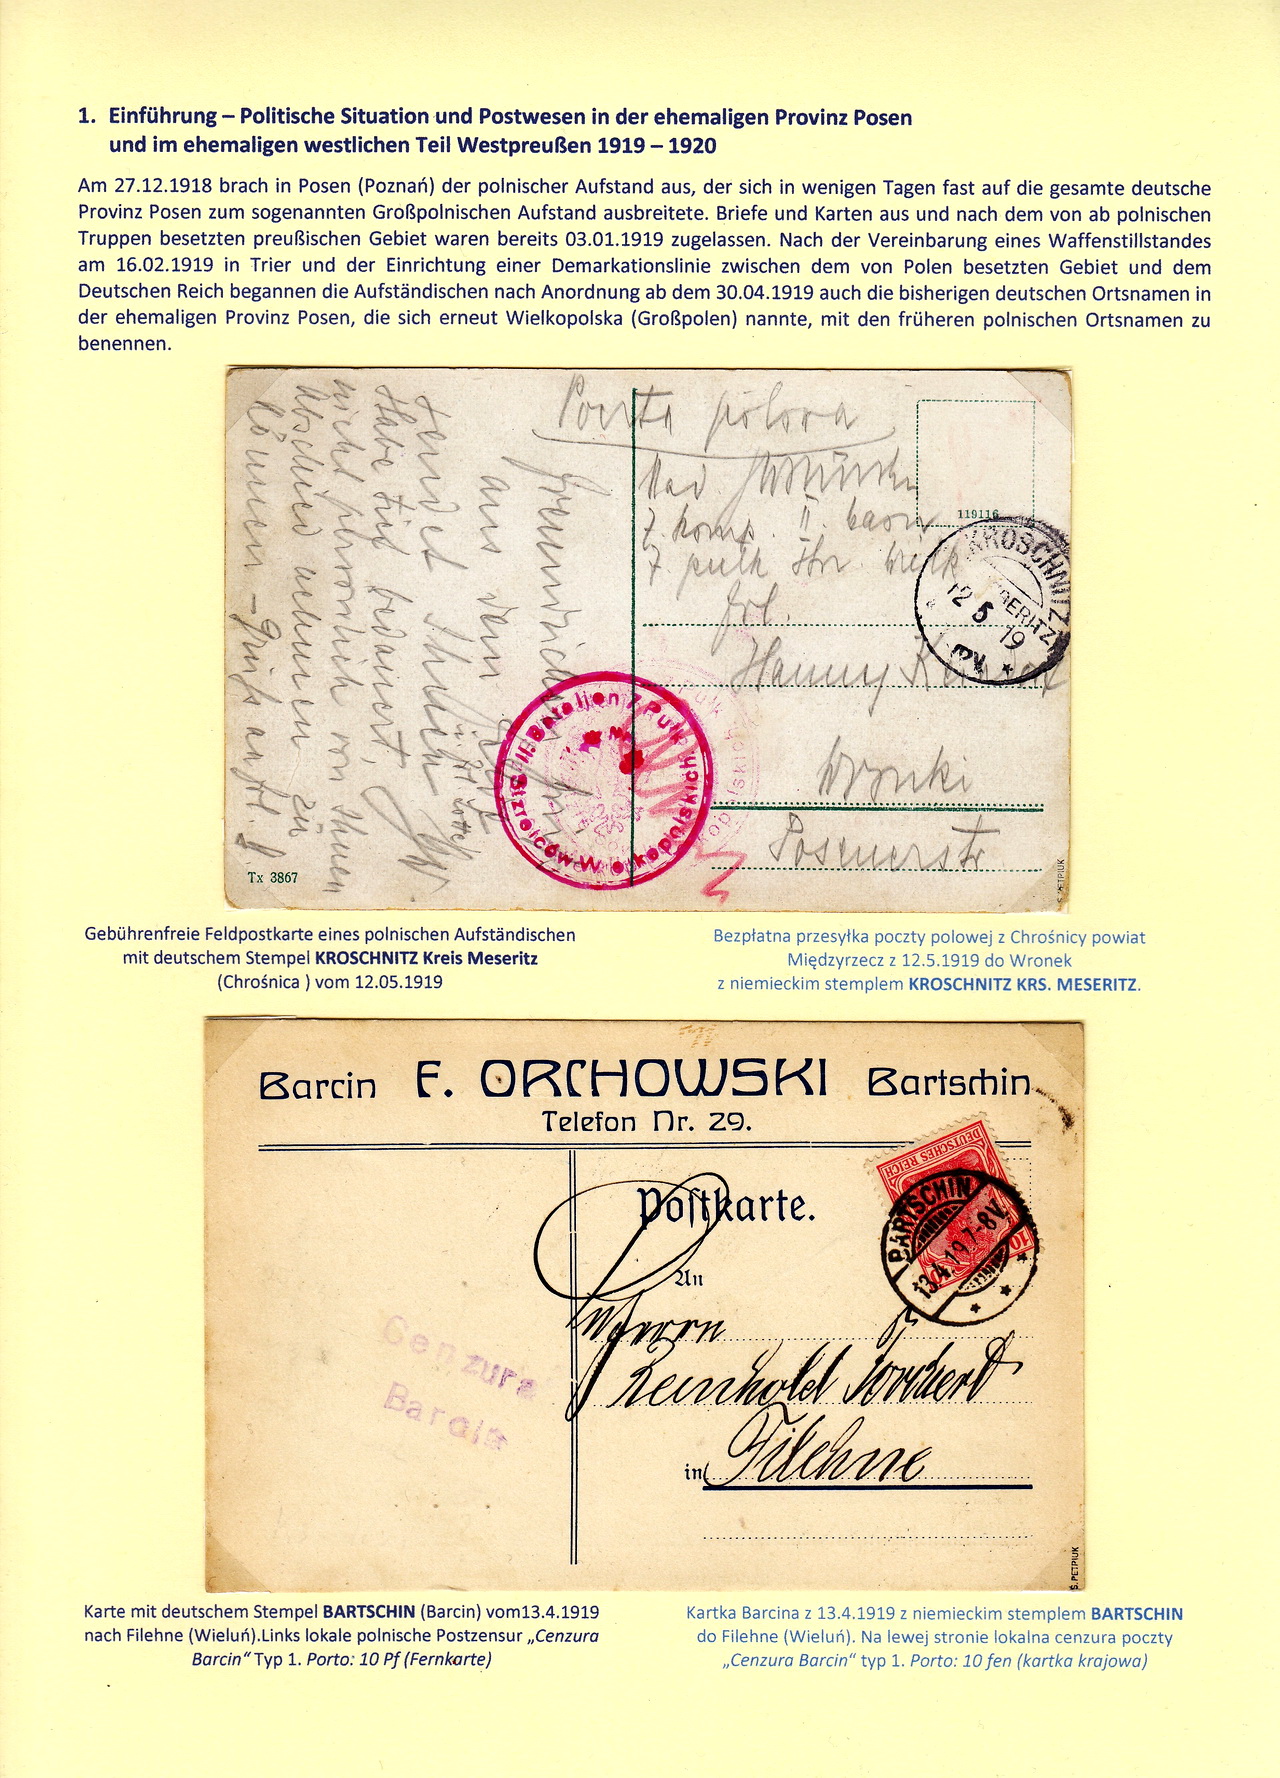 1. Einführung – Politische Situation und Postwesen in der ehemaligen Provinz Posen
und im ehemaligen westlichen Teil Westpreußen 1919 – 1920
Am 27.12.1918 brach in Posen (Poznań) der polnischer Aufstand aus, der sich in wenigen Tagen fast auf die gesamte deutsche
Provinz Posen zum sogenannten Großpolnischen Aufstand ausbreitete. Briefe und Karten aus und nach dem von ab polnischen
Truppen besetzten preußischen Gebiet waren bereits 03.01.1919 zugelassen. Nach der Vereinbarung eines Waffenstillstandes
am 16.02.1919 in Trier und der Einrichtung einer Demarkationslinie zwischen dem von Polen besetzten Gebiet und dem
Deutschen Reich begannen die Aufständischen nach Anordnung ab dem 30.04.1919 auch die bisherigen deutschen Ortsnamen in
der ehemaligen Provinz Posen, die sich erneut Wielkopolska (Großpolen) nannte, mit den früheren polnischen Ortsnamen zu
benennen.
polova
119116
7. komp. II. baon
7. pulk Str. Wielk
KROSCHNITZ
MESERITZ
12 5 19
Frl.
Hanny
Wronki
Posenerstr
II. Batalion 7. Pułk
Strzelców Wielkopolskich
Habe
bedauert,
nicht persönlich von Ihnen
Abschied nehmen zu
können
Tx 3867
S. PETPIUK
Gebührenfreie Feldpostkarte eines polnischen Aufständischen
mit deutschem Stempel KROSCHNITZ Kreis Meseritz
(Chrośnica ) vom 12.05.1919
Bezpłatna przesyłka poczty polowej z Chrośnicy powiat
Międzyrzecz z 12.5.1919 do Wronek
z niemieckim stemplem KROSCHNITZ KRS. MESERITZ.
Barcin F. ORCHOWSKI Bartschin
Telefon Nr. 29.
DEUTSCHES REICH
10
BARTSCHIN
13.4.19.7-8V.
Postkarte.
An
Herrn
Reinhold
in Filehne
Cenzura
Barcin
S. PETPIUK
Karte mit deutschem Stempel BARTSCHIN (Barcin) vom13.4.1919
nach Filehne (Wieluń).Links lokale polnische Postzensur „Cenzura
Barcin“ Typ 1. Porto: 10 Pf (Fernkarte)
Kartka Barcina z 13.4.1919 z niemieckim stemplem BARTSCHIN
do Filehne (Wieluń). Na lewej stronie lokalna cenzura poczty
„Cenzura Barcin“ typ 1. Porto: 10 fen (kartka krajowa)